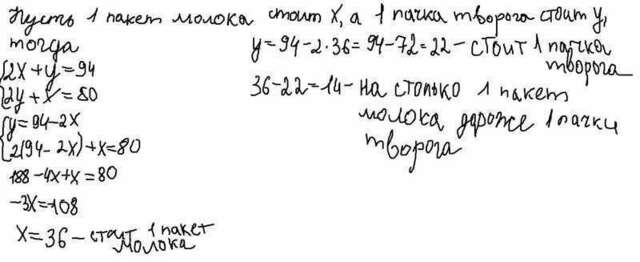 Пусть 1 пакет молока стоит X, а 1 пачка творога стоит y,
тогда
{2X+y=94
{2y+x=80
{y=94-2X
{2(94-2X)+X=80
188-4X+X=80
-3X=108
X=36-стоит 1 пакет
молока
y=94-2·36=94-72=22-стоит 1 пачка
творога
36-22=14-на столько 1 пакет
молока дороже 1 пачки
творога